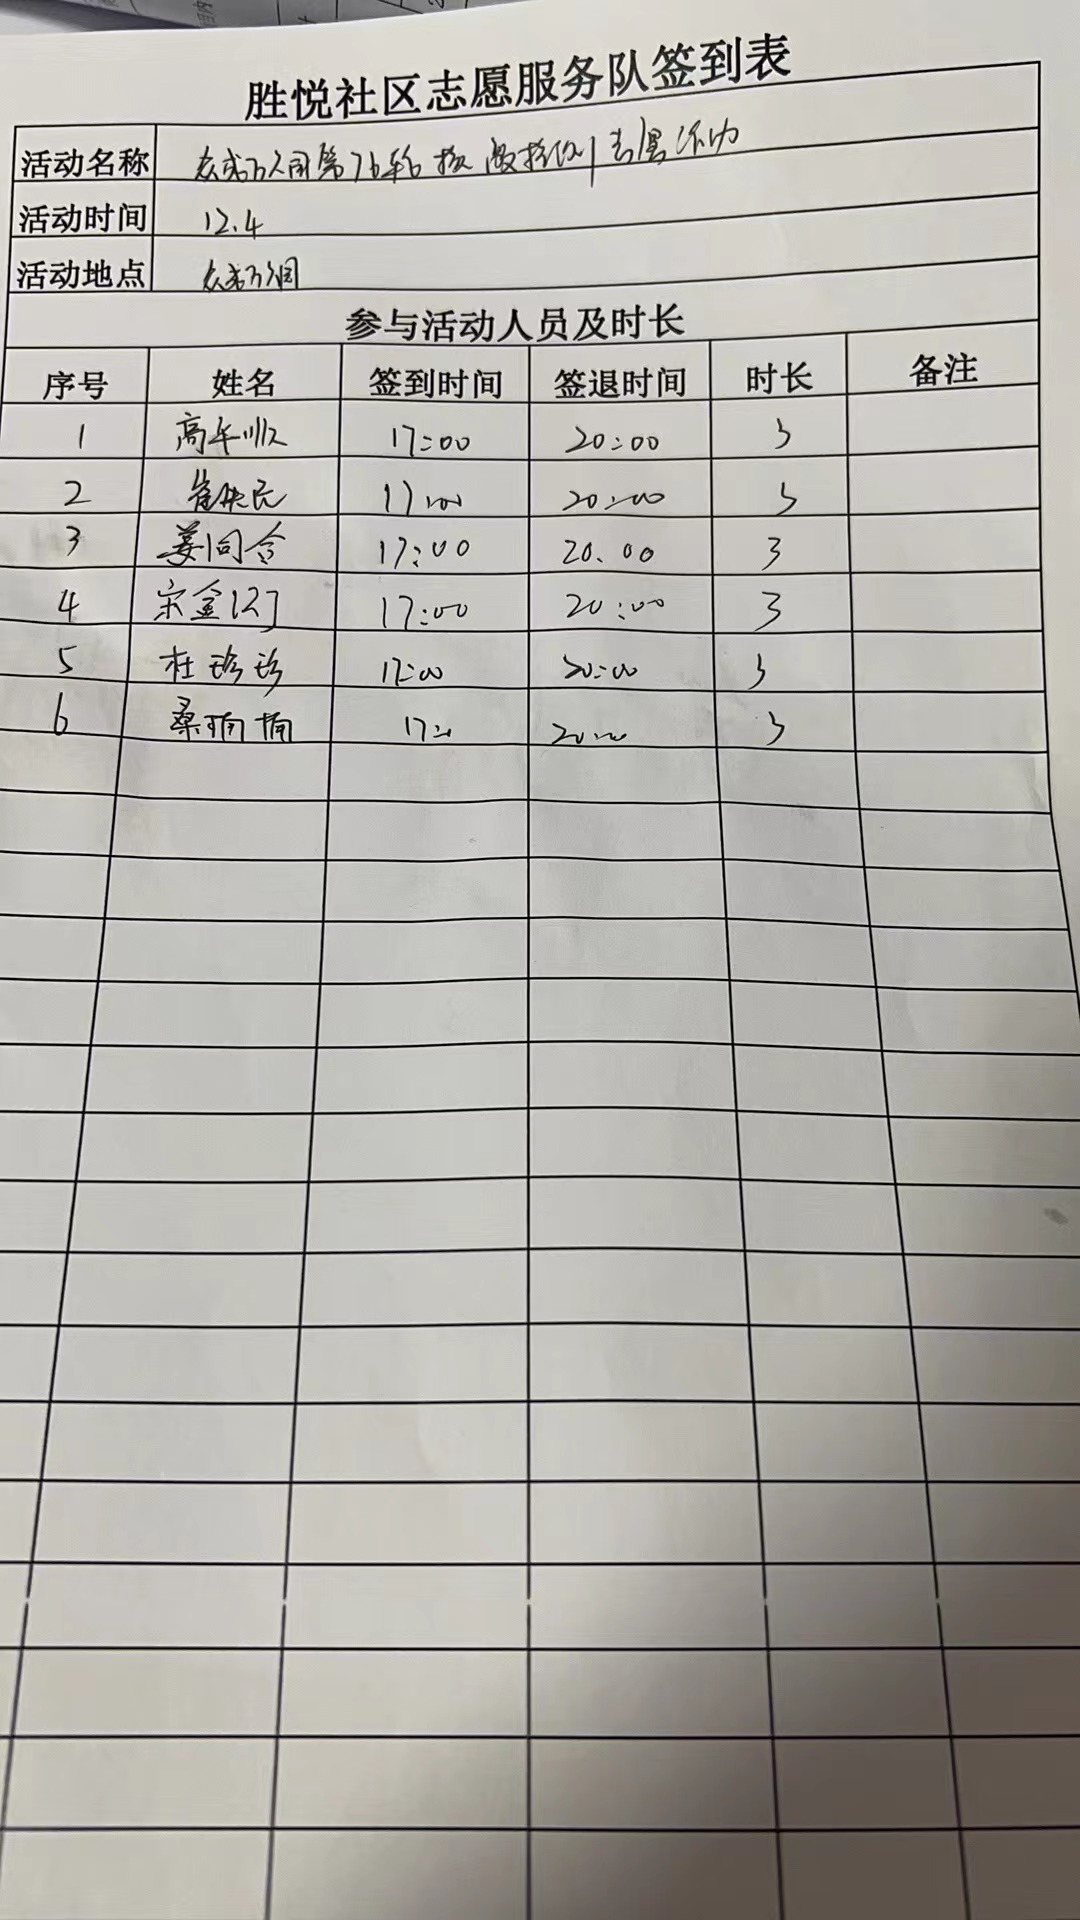 胜悦社区志愿服务队签到表
活动名称 众成万润第76轮核酸检测志愿活动
活动时间 12.4
活动地点 众成万润
参与活动人员及时长
序号 姓名 签到时间 签退时间 时长 备注
1 高年顺 17:00 20:00 3
2 崔 民 17:00 20:00 3
3 姜同合 17:00 20:00 3
4 宋金 17:00 20:00 3
5 杜珍珍 17:00 20:00 3
6 桑楠楠 17: 20:00 3